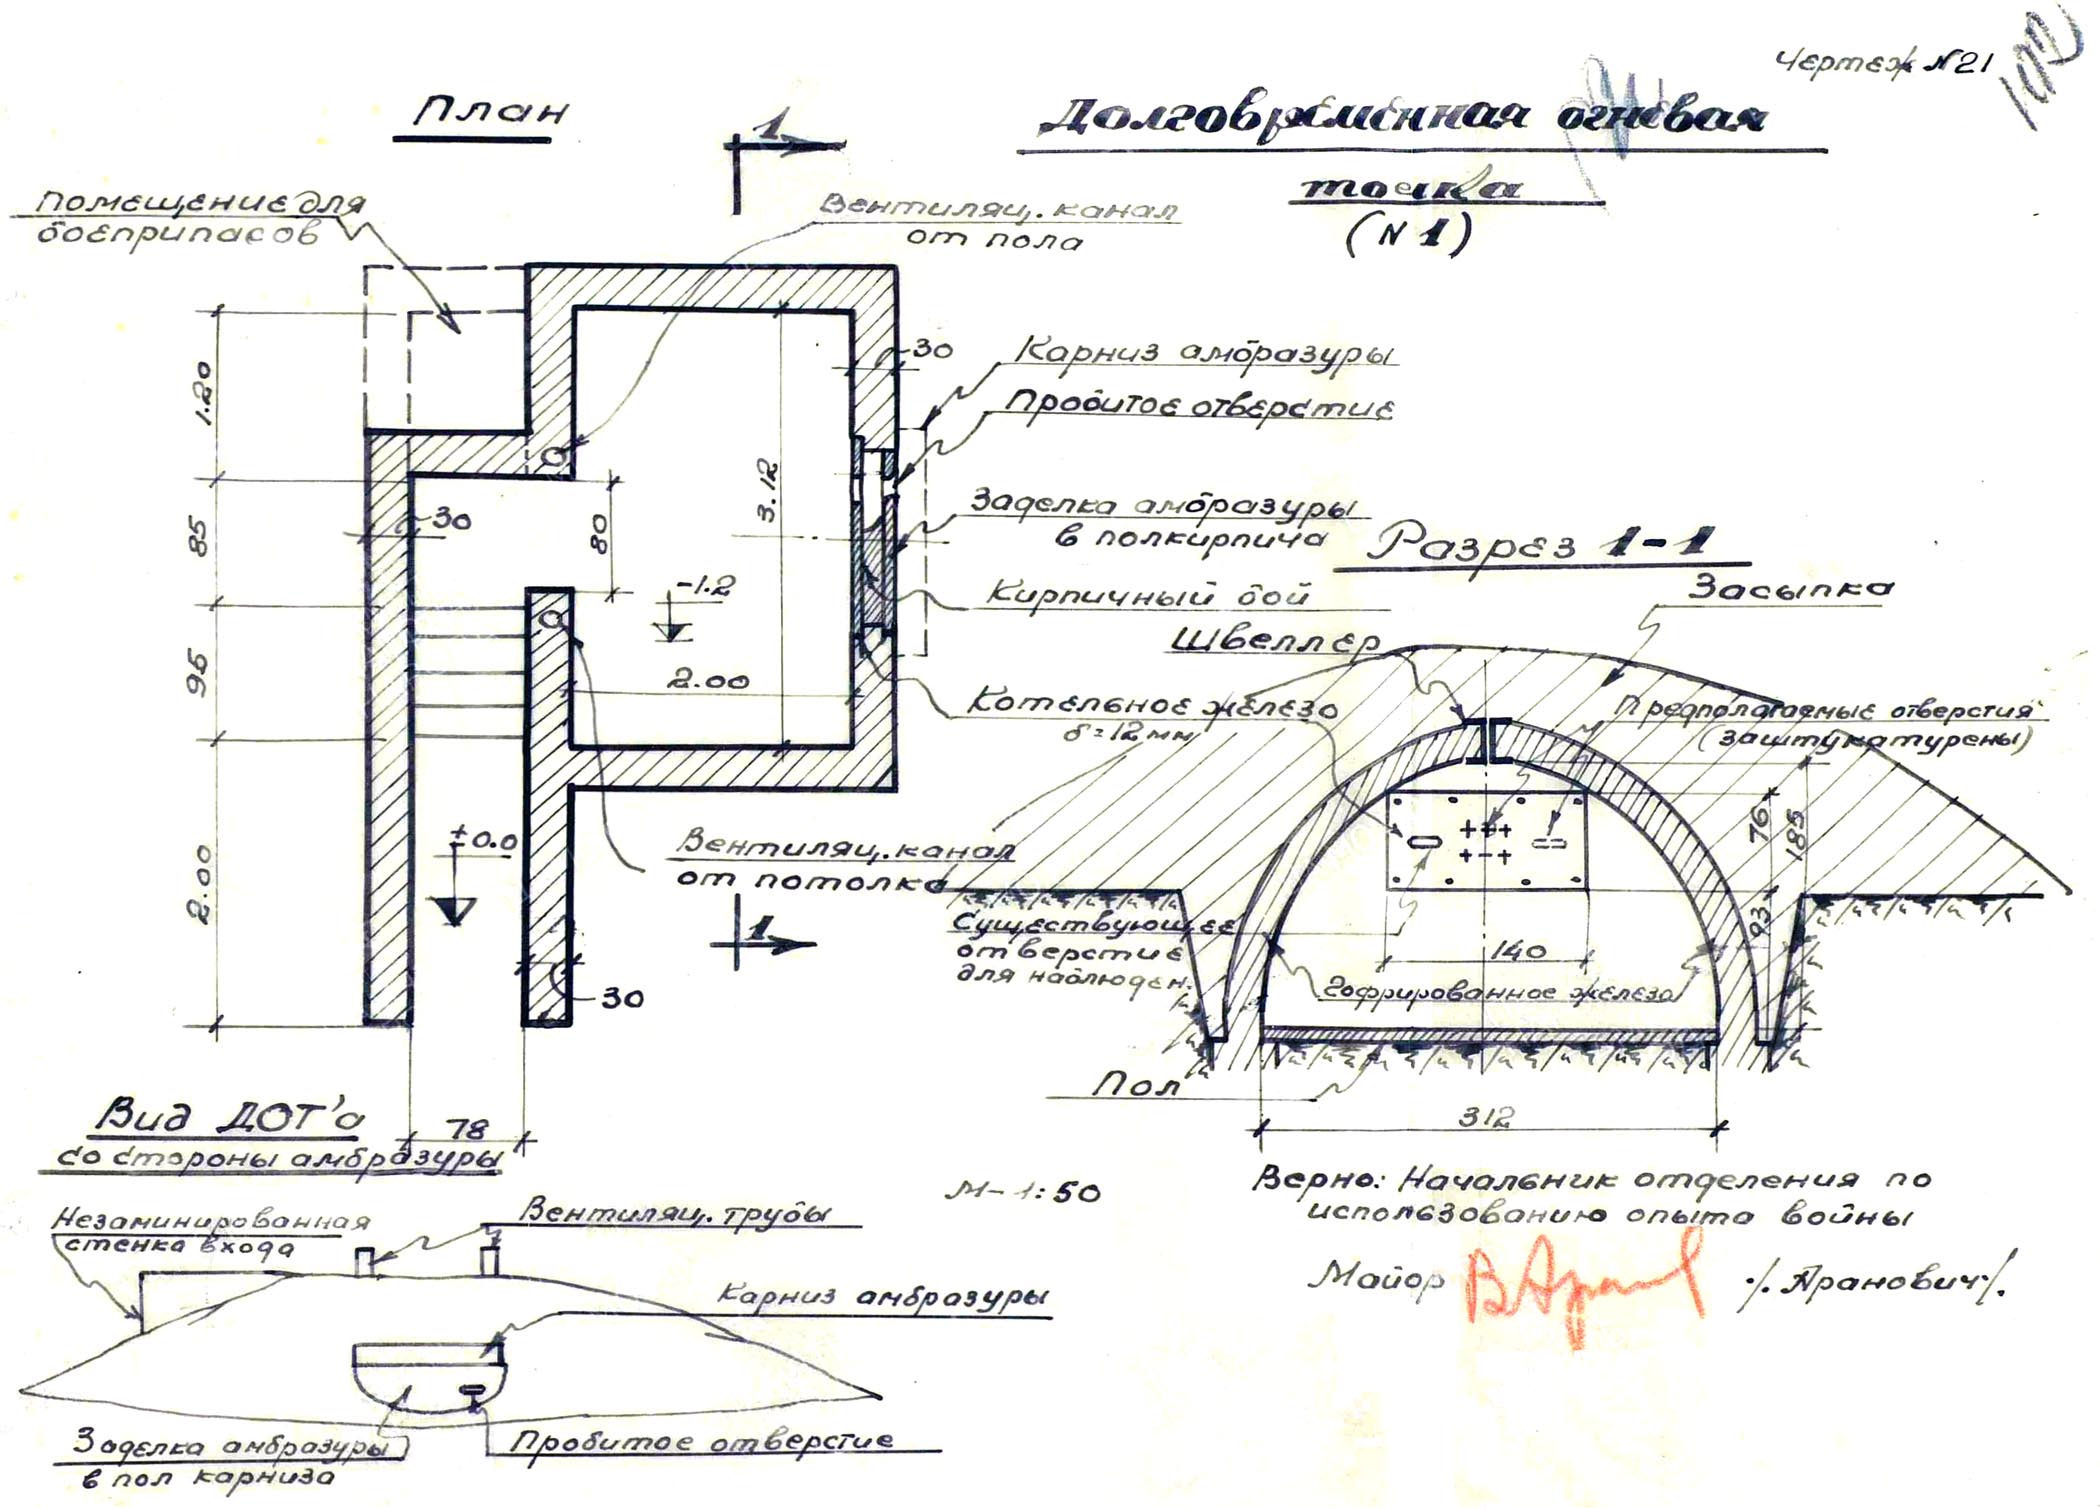 Чертеж N21
План
Долговременная огневая
точка
(N 1)
1
Помещение для
боеприпасов
Вентиляц. канал
от пола
30
Карниз амбразуры
Пробитое отверстие
Заделка амбразуры
в полкирпича
Кирпичный бой
Котельное железо
δ=12мм
1.20
85
95
2.00
30
80
3.12
-1.2
2.00
±0.0
Вентиляц. канал
от потолка
1
30
78
Разрез 1-1
Засыпка
Швеллер
Предполагаемые отверстия
(заштукатурены)
76
185
93
Существующее
отверстие
для наблюден.
140
Гофрированное железо
Пол
312
Вид ДОТ'а
со стороны амбразуры
Незаминированная
стенка входа
Вентиляц. трубы
Карниз амбразуры
Заделка амбразуры
в пол карниза
Пробитое отверстие
М-1:50
Верно: Начальник отделения по
использованию опыта войны
Майор /. Аранович/.